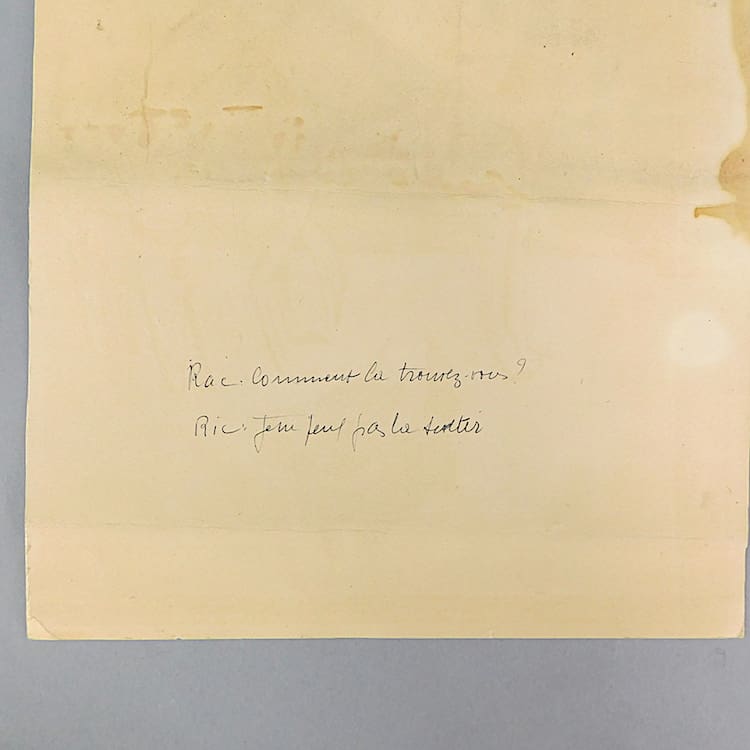 Rac. Comment la trouvez-vous?
Ric. Je ne peux pas la sentir